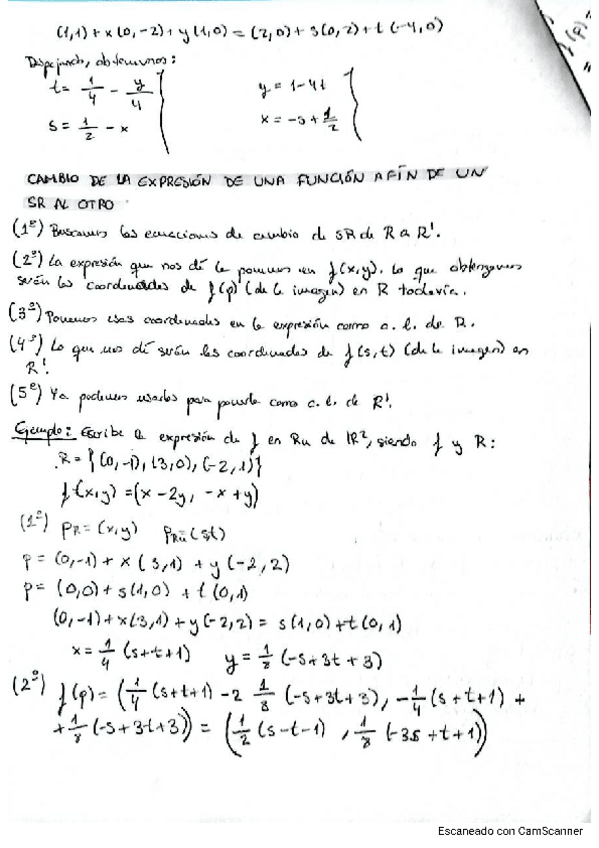 (1,1) + x(0,-2) + y(1,0) = (2,0) + s(0,2) + t(-4,0)
Despejando, obtenemos:
t = 1/4 - y/4     y = 1-4t
s = 1/2 - x     x = -s + 1/2
CAMBIO DE LA EXPRESIÓN DE UNA FUNCIÓN AFÍN DE UN
SR AL OTRO
(1º) Buscamos las ecuaciones de cambio de SR de R a R'.
(2º) La expresión que nos dé la ponemos en f(x,y). Lo que obtengamos
serán las coordenadas de f(p) (de la imagen) en R todavía.
(3º) Ponemos esas coordenadas en la expresión como c. l. de R.
(4º) Lo que nos dé serán las coordenadas de f(s,t) (de la imagen) en
R'.
(5º) Ya podemos usarlas para ponerla como c. l. de R'.
Ejemplo: Escribe la expresión de f en Ru de ℝ², siendo f y R:
R = {(0,-1), (3,0), (-2,1)}
f(x,y) = (x-2y, -x+y)
(1º) PR = (x,y)   PRu (s,t)
p = (0,-1) + x(3,1) + y(-2,2)
p = (0,0) + s(1,0) + t(0,1)
(0,-1) + x(3,1) + y(-2,2) = s(1,0) + t(0,1)
x = 1/4 (s+t+1)   y = 1/8 (-s+3t+3)
(2º) f(p) = (1/4 (s+t+1) - 2 1/8 (-s+3t+3), -1/4 (s+t+1) +
+ 1/8 (-s+3t+3)) = (1/2 (s-t-1), 1/8 (-3s+t+1))
Escaneado con CamScanner